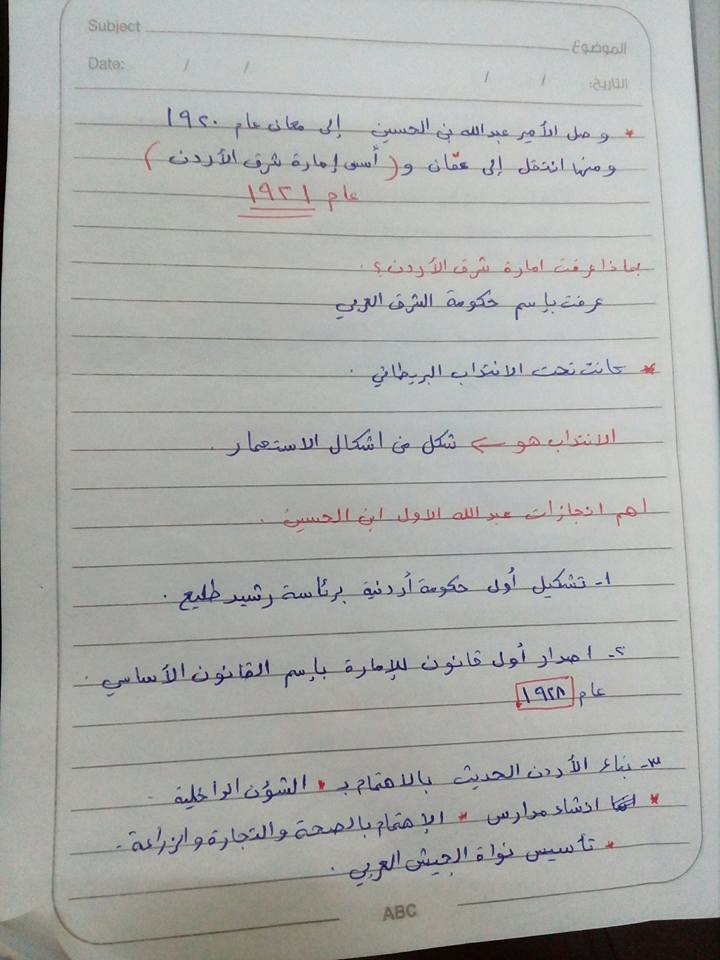 Subject الموضوع
Date: / / / / التاريخ:
* وصل الأمير عبدالله بن الحسين إلى معان عام ١٩٢٠
ومنها انتقل إلى عمّان و(أسس إمارة شرق الأردن)
عام ١٩٢١
بماذا عرفت امارة شرق الأردن؟.
عرفت بإسم حكومة الشرق العربي
* كانت تحت الانتداب البريطاني .
الانتداب هو ← شكل من اشكال الاستعمار .
اهم انجازات عبدالله الاول ابن الحسين .
١- تشكيل أول حكومة أردنية برئاسة رشيد طليع .
٢- اصدار أول قانون للإمارة بإسم القانون الأساسي .
عام ١٩٢٨
٣- بناء الأردن الحديث بالاهتمام بـ * الشؤن الداخلية
* انشاء مدارس * الإهتمام بالصحة والتجارة والزراعة .
* تأسيس نواة الجيش العربي .
ABC